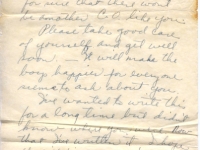 for sure that there won't
be another C.O. like you.
Please take good care
of yourself and get well
soon. — It will make the
boys happier for everyone
seems to ask about you.
I've wanted to write this
for a long time but didn't
know
that I've written it I hope